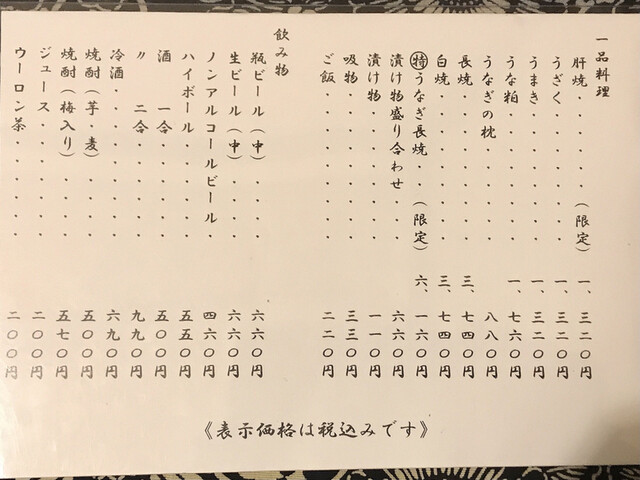 一品料理
肝焼・・・・・・(限定) 一、三二〇円
うざく・・・・・・・ 一、三二〇円
うまき・・・・・・・ 一、三二〇円
うな粕・・・・・・・ 一、七六〇円
うなぎの枕・・・・・ 八八〇円
長焼・・・・・・・・ 三、七四〇円
白焼・・・・・・・・ 三、七四〇円
㊕うなぎ長焼・・(限定) 六、一六〇円
漬け物盛り合わせ・・ 六六〇円
漬け物・・・・・・・ 一一〇円
吸物・・・・・・・・ 三三〇円
ご飯・・・・・・・・ 二二〇円
飲み物
瓶ビール(中)・・・ 六六〇円
生ビール(中)・・・ 六六〇円
ノンアルコールビール・ 四六〇円
ハイボール・・・・・ 五五〇円
酒 一合・・・・・ 五五〇円
〃 二合・・・・・ 九九〇円
冷酒・・・・・・・・ 六九〇円
焼酎(芋・麦)・・・ 五〇〇円
焼酎(梅入り)・・・ 五七〇円
ジュース・・・・・・ 二〇〇円
ウーロン茶・・・・・ 二〇〇円
《表示価格は税込みです》